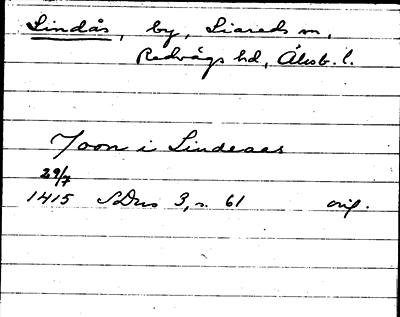 Lindås, by, Liareds sn,
Redvägs hd, Älvsb. l.
Joon i Lindeaas
29/7
1415 SDns 3, s. 61 orig.